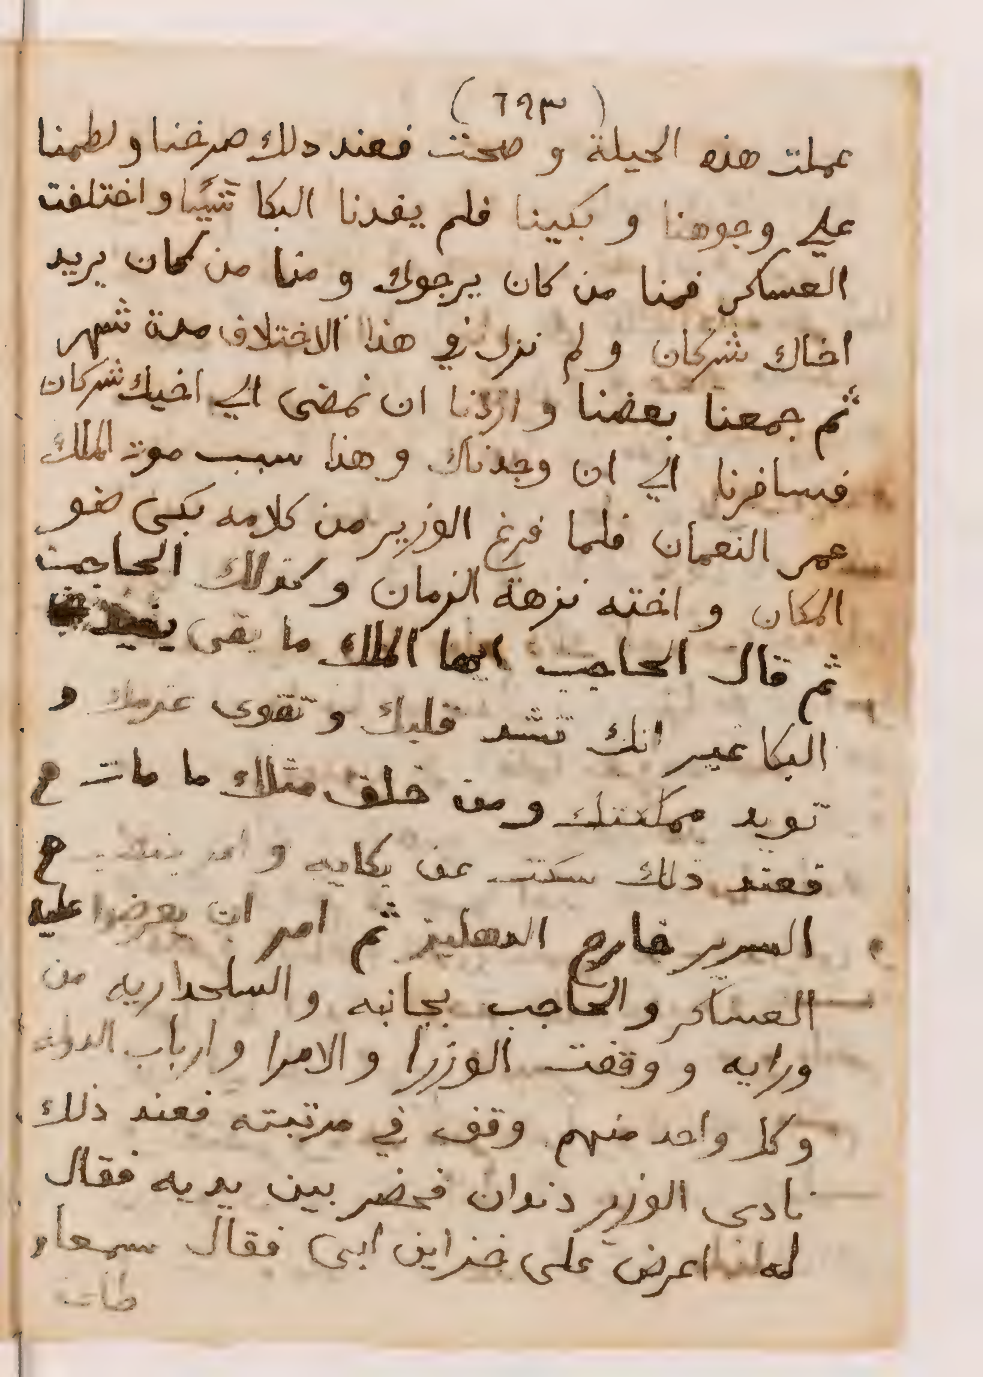 (٦٩٣)
عملت هذه الحيلة و صحت فعند دلك صرخنا و لطمنا
علي وجوهنا و بكينا فلم يفدنا البكا شيًا و اختلفت
العساكر فمنا من كان يرجوك و منا من كان يريد
اخاك شركان و لم نزل في هذا الاختلاف مدة شهر
ثم جمعنا بعضنا و اردنا ان نمضى الي اخيك شركان
فسافرنا الي ان وجدناك و هذا سبب موت الملك
عمر النعمان فلما فرغ الوزير من كلامه بكى ضو
المكان و اخته نزهة الزمان و كذلك الحاجب
ثم قال الحاجب ايها الملك ما بقى يفيد
البكا غير انك تشد قلبك و تقوى عزمك و
تويد مملكتك و من خلف مثلك ما مات
فعند ذلك سكت عن بكايه و امر
السرير خارج الدهليز ثم امر ان يعرضوا عليه
العساكر و الحاجب بجانبه و السلحداريه من
ورايه و وقفت الوزرا و الامرا و ارباب الدوله
و كل واحد منهم وقف في مرتبته فعند ذلك
نادى الوزير دندان فحضر بين يديه فقال
له اعرض على خزاين ابى فقال سمعا و